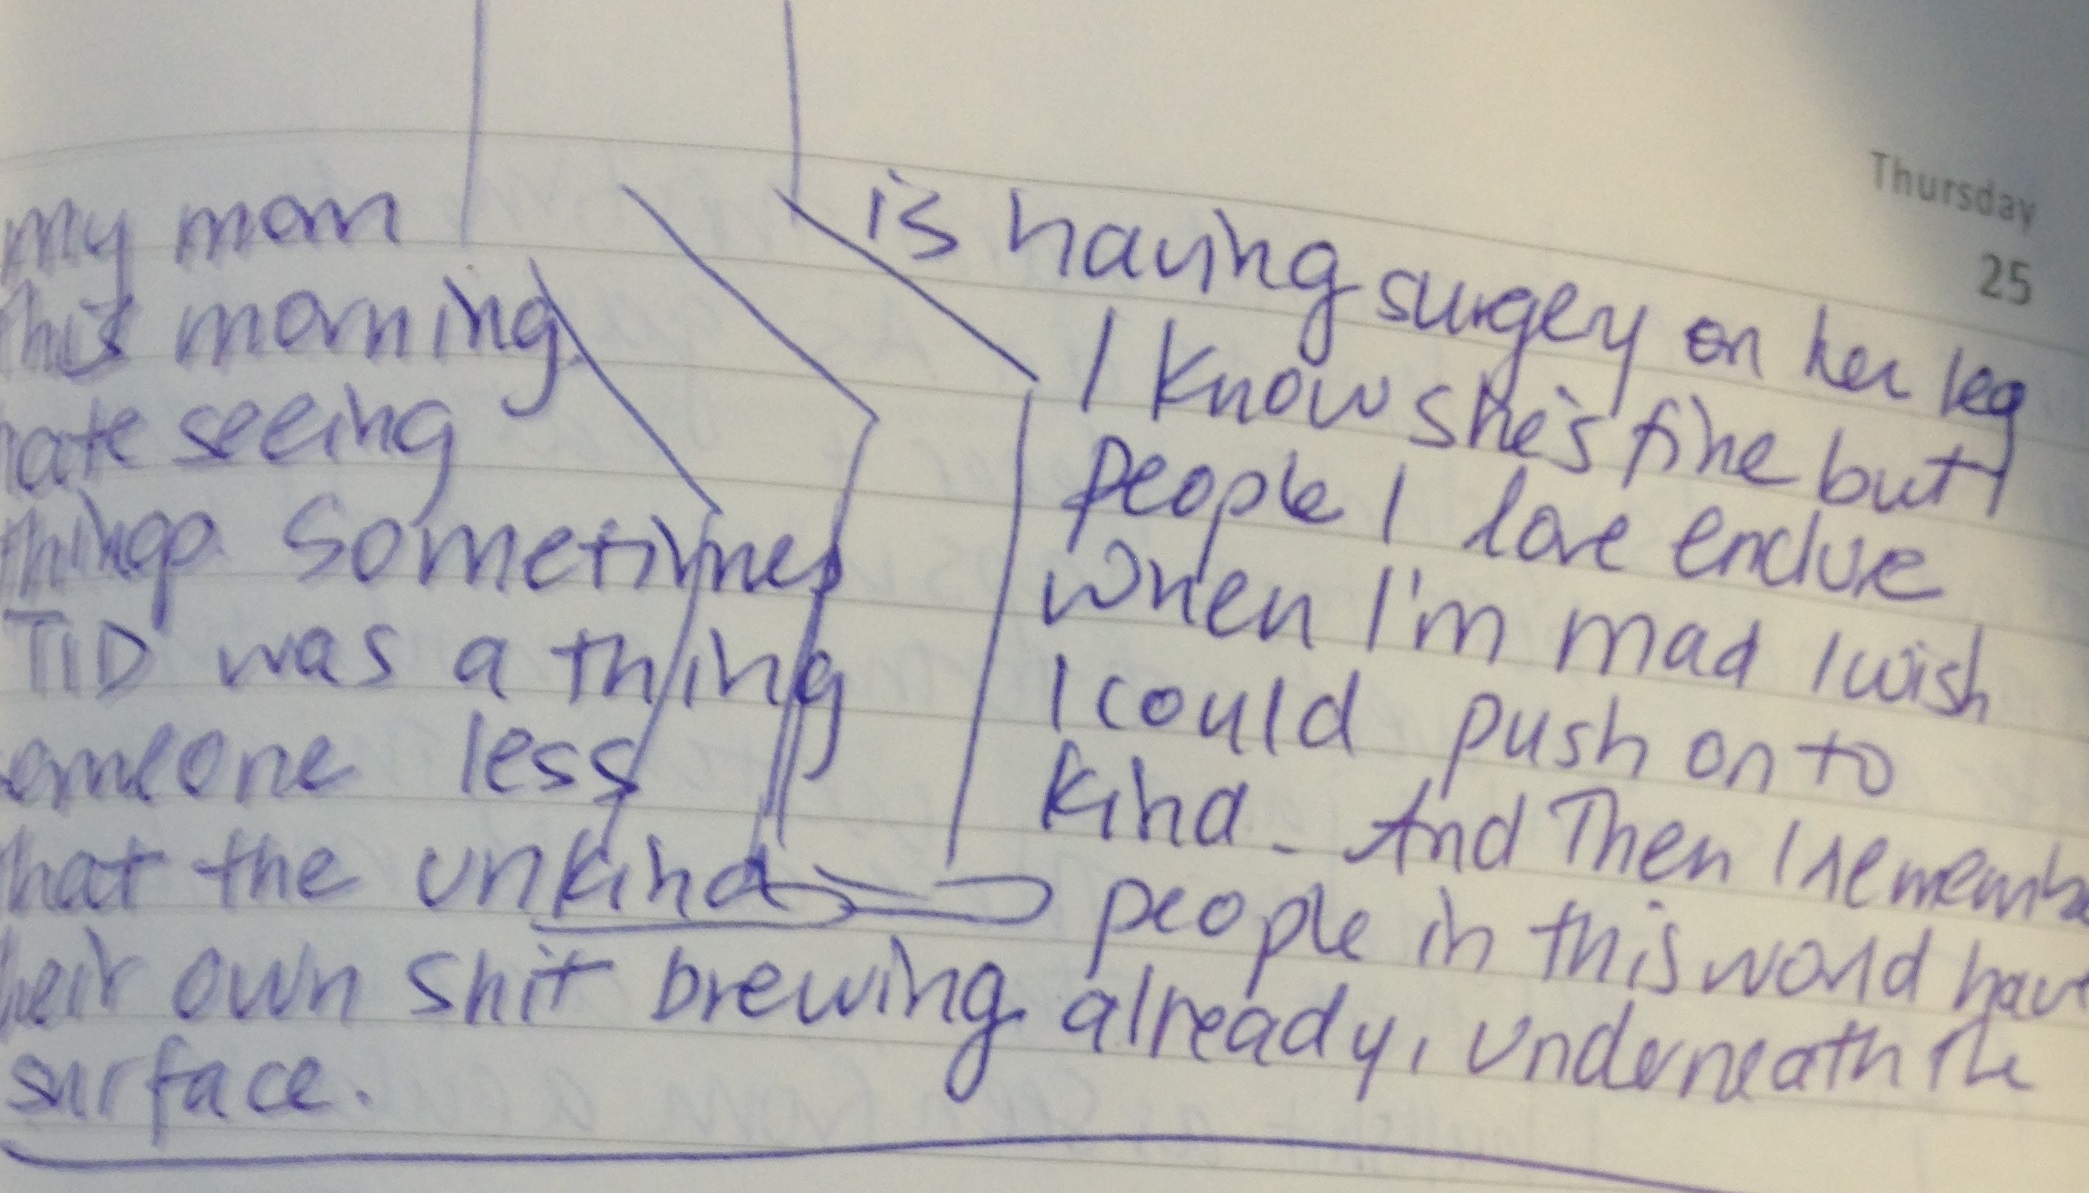 Thursday
25
my mom is having surgey on her leg
this morning. I know she's fine but I
hate seeing people I love endure
things. Sometimes when I'm mad I wish
TID was a thing I could push on to
someone less kind. And Then I remember
that the unkind people in this world have
their own shit brewing already, underneath the
surface.